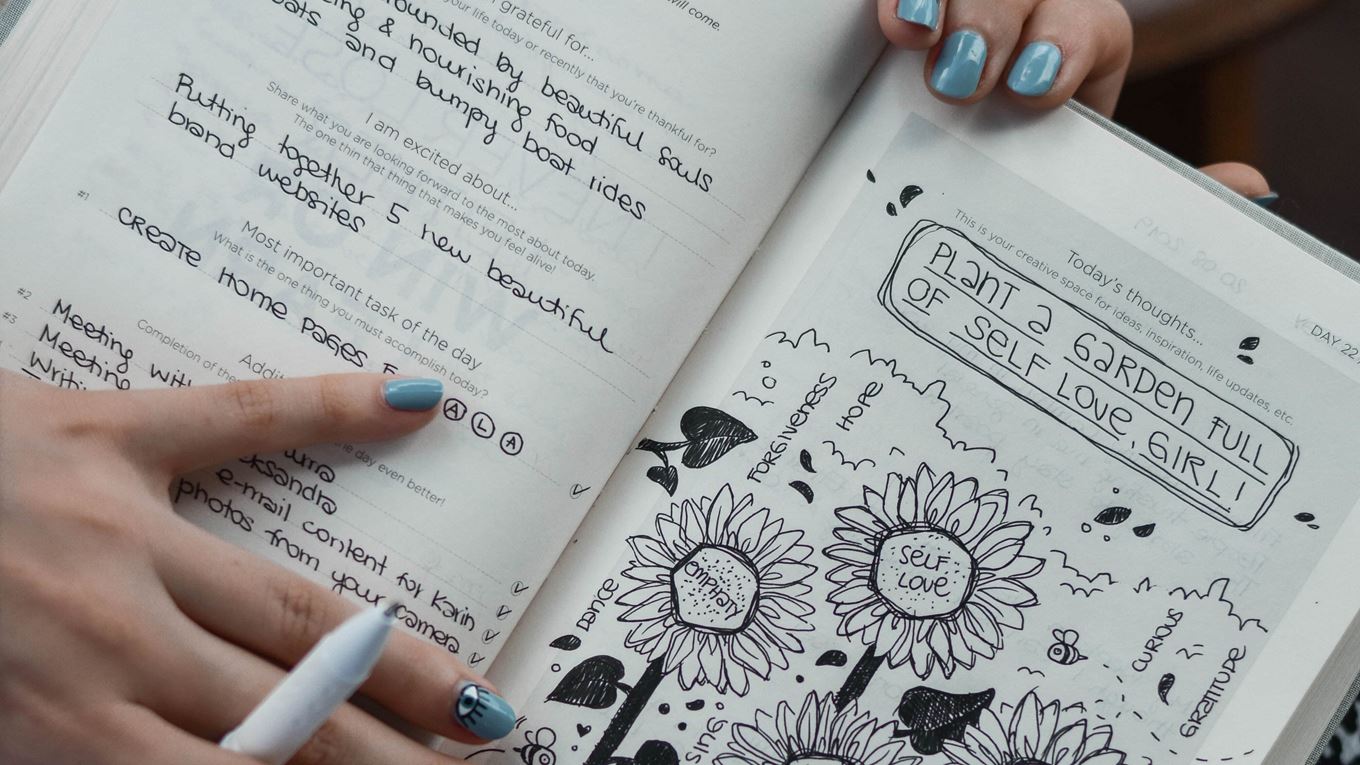 will come.
grateful for...
your life today or recently that you're thankful for?
by beautiful souls
& nourishing food
and bumpy boat rides
I am excited about...
Share what you are looking forward to the most about today.
The one thin that thing that makes you feel alive!
Putting together 5 new beautiful
brand websites
Most important task of the day
What is the one thing you must accomplish today?
#1 CREATE HOME PAGES
ALA
Completion of
#2 Meeting
#3 Meeting
day even better!
e-mail content for Karin
photos from your camera
DAY 22
Today's thoughts...
This is your creative space for ideas, inspiration, life updates, etc.
PLANT A GARDEN FULL
OF SELF LOVE, GIRL!
FORGIVENESS
HOPE
EMPHATY
SELF
LOVE
DANCE
CURIOUS
GRATITUDE
SING